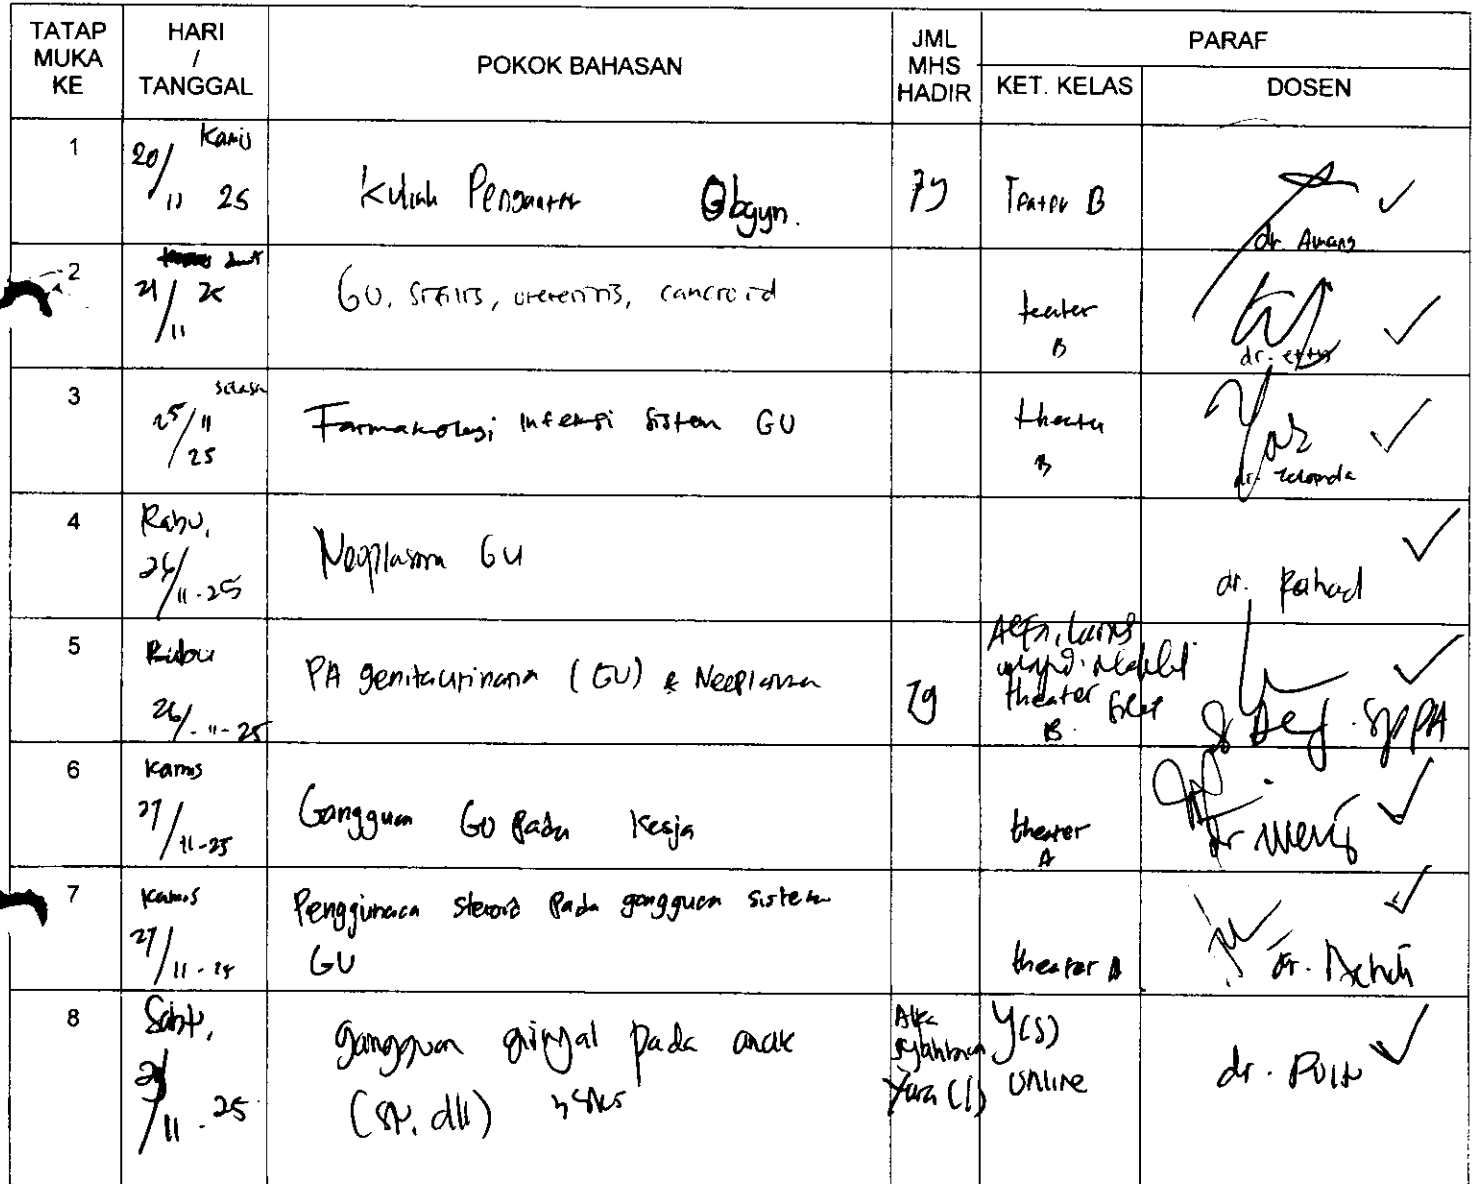 TATAP MUKA KE
HARI / TANGGAL
POKOK BAHASAN
JML MHS HADIR
PARAF
KET. KELAS
DOSEN
1
Kamis
20/11 25
Kuliah Pengantar Obgyn.
79
Teater B
dr. Awang
2
21/11 25
GU, sifilis, uretritis, cancroid
teater
B
dr.
3
selasa
25/11
25
Farmakologi infeksi sistem GU
theater
B
dr.
4
Rabu,
26/11-25
Neoplasma GU
dr. Rahad
5
Rabu
26/-11-25
PA genitaurinaria (GU) & Neoplasma
79
theater
B.
SpPA
6
Kamis
27/11-25
Gangguan GU pada Kerja
theater
A
dr
7
Kamis
27/11-25
Penggunaan steroid pada gangguan sistem
GU
theater A
dr.
8
Sabtu,
/11-25
gangguan ginjal pada anak
(SN, dll)
Yara (I)
Y(S)
online
dr.